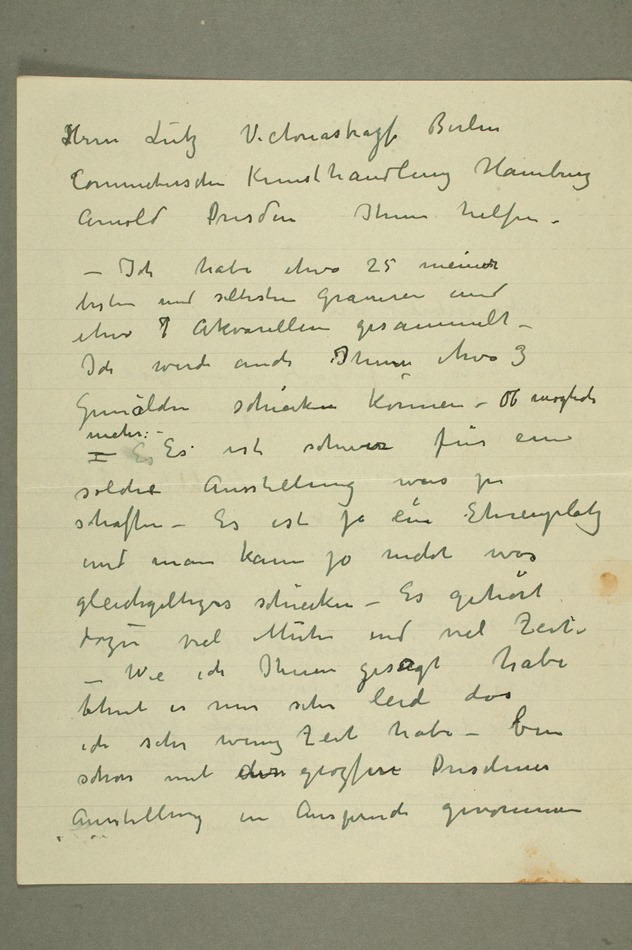 Herrn Lutz Victoriastrasse Berlin
Commetersche Kunsthandlung Hamburg
Arnold Dresden Ihnen helfen.
– Ich habe etwa 25 meiner
besten und seltesten Gravuren und
etwa 7 Akvarellen gesammelt –
Ich werde auch Ihnen etwa 3
Gemälden schicken können – Ob möglich
mehr: –
Es ist schwer für eine
solche Ausstellung was zu
schaffen – Es ist ja ein Ehrenplatz
und man kann jo nicht was
gleichgeltiges schicken – Es gehört
dazu viel Mühe und viel Zeit.
– Wie ich Ihnen gesagt habe
thut es mir sehr leid das
ich sehr wenig Zeit habe – bin
schon mit grozsen Dresdener
Ausstellung in Anspruch genommen